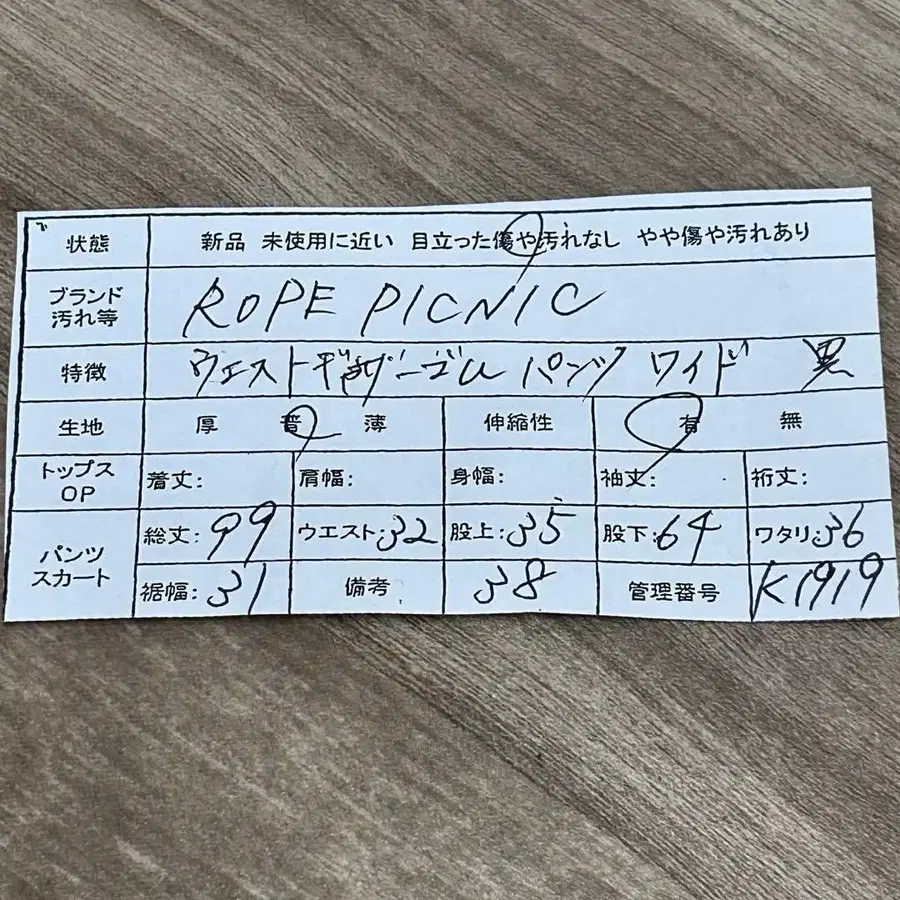 状態 新品 未使用に近い 目立った傷や汚れなし やや傷や汚れあり
ブランド
汚れ等 ROPE PICNIC
特徴 ウエストギャザーゴム パンツ ワイド 黒
生地 厚 普 薄 伸縮性 有 無
トップス
OP 着丈: 肩幅: 身幅: 袖丈: 裄丈:
パンツ
スカート 総丈:99 ウエスト:32 股上:35 股下:64 ワタリ:36
裾幅:31 備考 38 管理番号 K1919